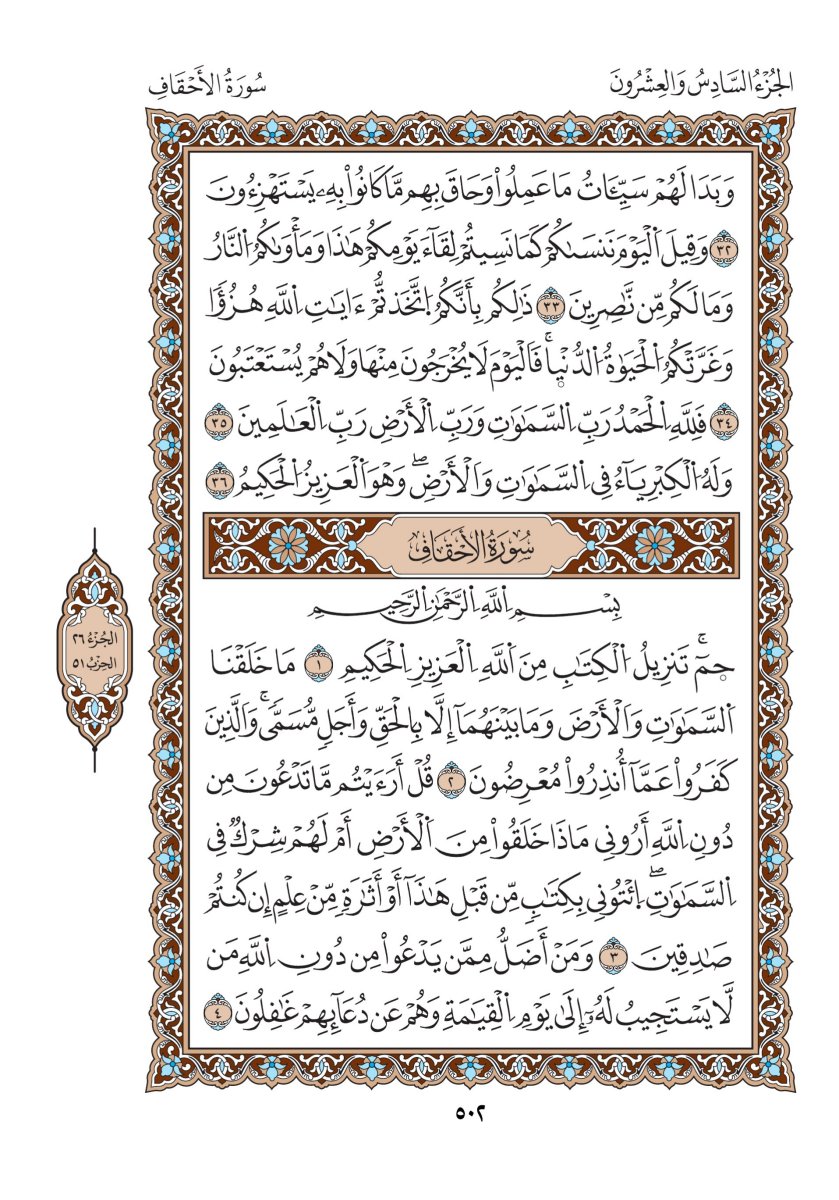 الجُزْءُ السَّادِسُ وَالعِشْرُونَ
سُورَةُ الأَحْقَافِ
وَبَدَا لَهُمْ سَيِّـَٔاتُ مَا عَمِلُواْ وَحَاقَ بِهِم مَّا كَانُواْ بِهِۦ يَسْتَهْزِءُونَ
٣٢ وَقِيلَ اَ۬لْيَوْمَ نَنس۪ىٰكُمْ كَمَا نَسِيتُمْ لِقَآءَ يَوْمِكُمْ هَٰذَا وَمَأْو۪ىٰكُمُ اُ۬لنَّارُ
وَمَا لَكُم مِّن نَّٰصِرِينَ ٣٣ ذَٰلِكُم بِأَنَّكُمُ اُ۪تَّخَذتُّمْ ءَايَٰتِ اِ۬للَّهِ هُزُؤٗا
وَغَرَّتْكُمُ اُ۬لْحَيَوٰةُ اُ۬لدُّنْي۪اۚ فَالْيَوْمَ لَا يُخْرَجُونَ مِنْهَا وَلَا هُمْ يُسْتَعْتَبُونَ
٣٤ فَلِلَّهِ اِ۬لْحَمْدُ رَبِّ اِ۬لسَّمَٰوَٰتِ وَرَبِّ اِ۬لْأَرْضِ رَبِّ اِ۬لْعَٰلَمِينَ ٣٥
وَلَهُ اُ۬لْكِبْرِيَآءُ فِي اِ۬لسَّمَٰوَٰتِ وَالْأَرْضِۖ وَهْوَ اَ۬لْعَزِيزُ اُ۬لْحَكِيمُ ٣٦
سُورَةُ الأَحْقَافِ
بِسْمِ اِ۬للَّهِ اِ۬لرَّحْمَٰنِ اِ۬لرَّحِيمِ
ح۪مٓۚ تَنزِيلُ اُ۬لْكِتَٰبِ مِنَ اَ۬للَّهِ اِ۬لْعَزِيزِ اِ۬لْحَكِيمِ ١ مَا خَلَقْنَا
اَ۬لسَّمَٰوَٰتِ وَالْأَرْضَ وَمَا بَيْنَهُمَآ إِلَّا بِالْحَقِّ وَأَجَلٖ مُّسَمّٗىۚ وَالَّذِينَ
كَفَرُواْ عَمَّآ أُنذِرُواْ مُعْرِضُونَ ٢ قُلْ أَرَءَيْتُم مَّا تَدْعُونَ مِن
دُونِ اِ۬للَّهِ أَرُونِي مَاذَا خَلَقُواْ مِنَ اَ۬لْأَرْضِ أَمْ لَهُمْ شِرْكٞ فِي
اِ۬لسَّمَٰوَٰتِۖ اِ۪ئْتُونِي بِكِتَٰبٖ مِّن قَبْلِ هَٰذَآ أَوْ أَثَٰرَةٖ مِّنْ عِلْمٍ إِن كُنتُمْ
صَٰدِقِينَ ٣ وَمَنْ أَضَلُّ مِمَّن يَدْعُواْ مِن دُونِ اِ۬للَّهِ مَن
لَّا يَسْتَجِيبُ لَهُۥٓ إِلَىٰ يَوْمِ اِ۬لْقِيَٰمَةِ وَهُمْ عَن دُعَآئِهِمْ غَٰفِلُونَ ٤
الجُزْءُ ٢٦
الحِزْبُ ٥١
٥٠٢